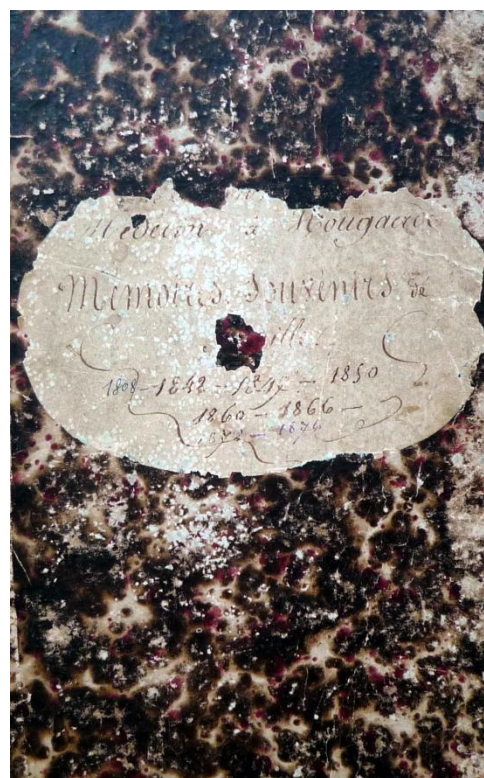 Médecin à Mougaere
Mémoires Souvenirs de
ille
1808 – 1842 – 1847 – 1850
1860 – 1866 –
1872 – 1876